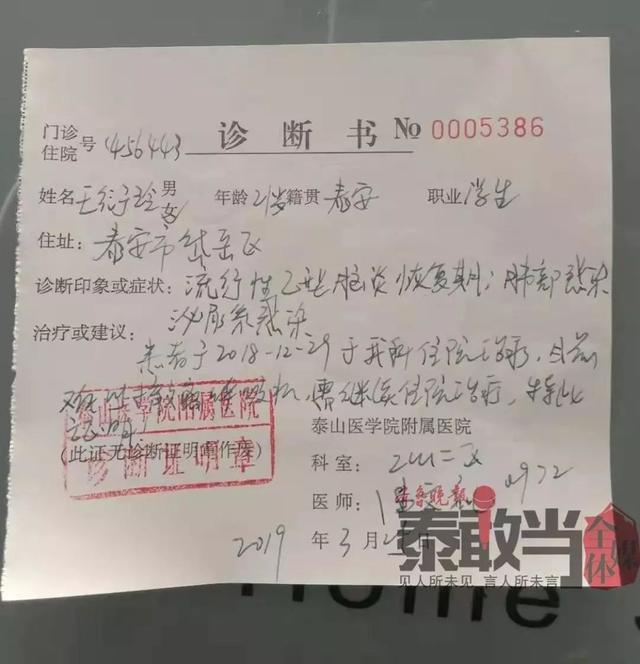 诊断书 № 0005386
门诊
住院 号 456443
姓名 王衍玲 男 女 年龄 21岁 籍贯 泰安 职业 学生
住址: 泰安市岱岳区
诊断印象或症状: 流行性乙型脑炎恢复期; 肺部感染
泌尿系感染
治疗或建议:
患者于2018-12-29于我科住院治疗,目前
呼吸机,需继续住院治疗,特此
证明
泰山医学院附属医院
诊断证明章
(此证无诊断证明章作废)
泰山医学院附属医院
科室: ICU二区
医师: 0972
2019 年 3 月 日
齐鲁晚报
泰敢当
全媒体
见人所未见 言人所未言
Home